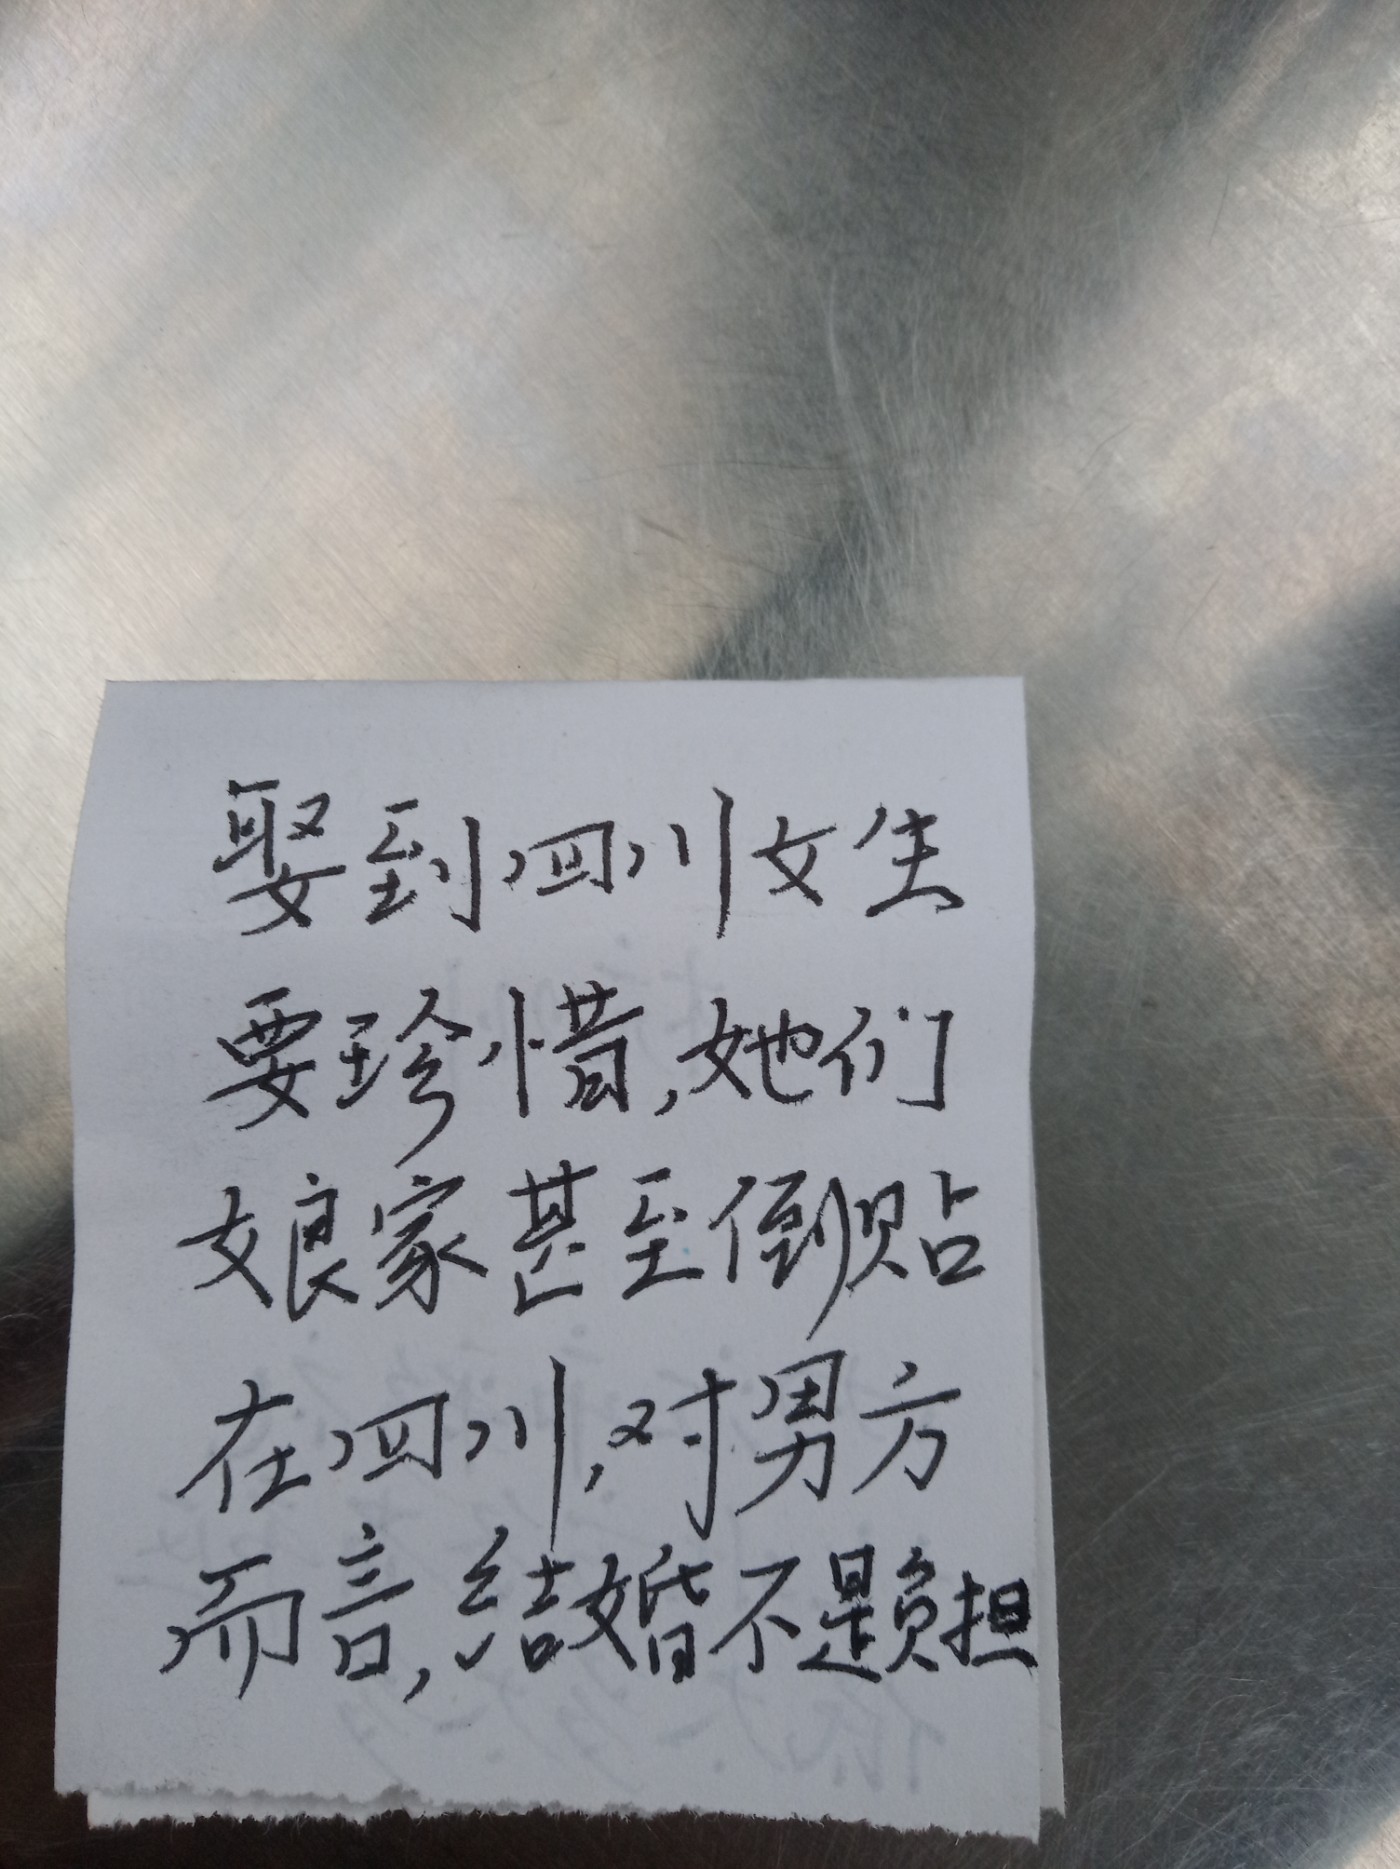 娶到四川女生
要珍惜,她们
娘家甚至倒贴
在四川,对男方
而言,结婚不是负担